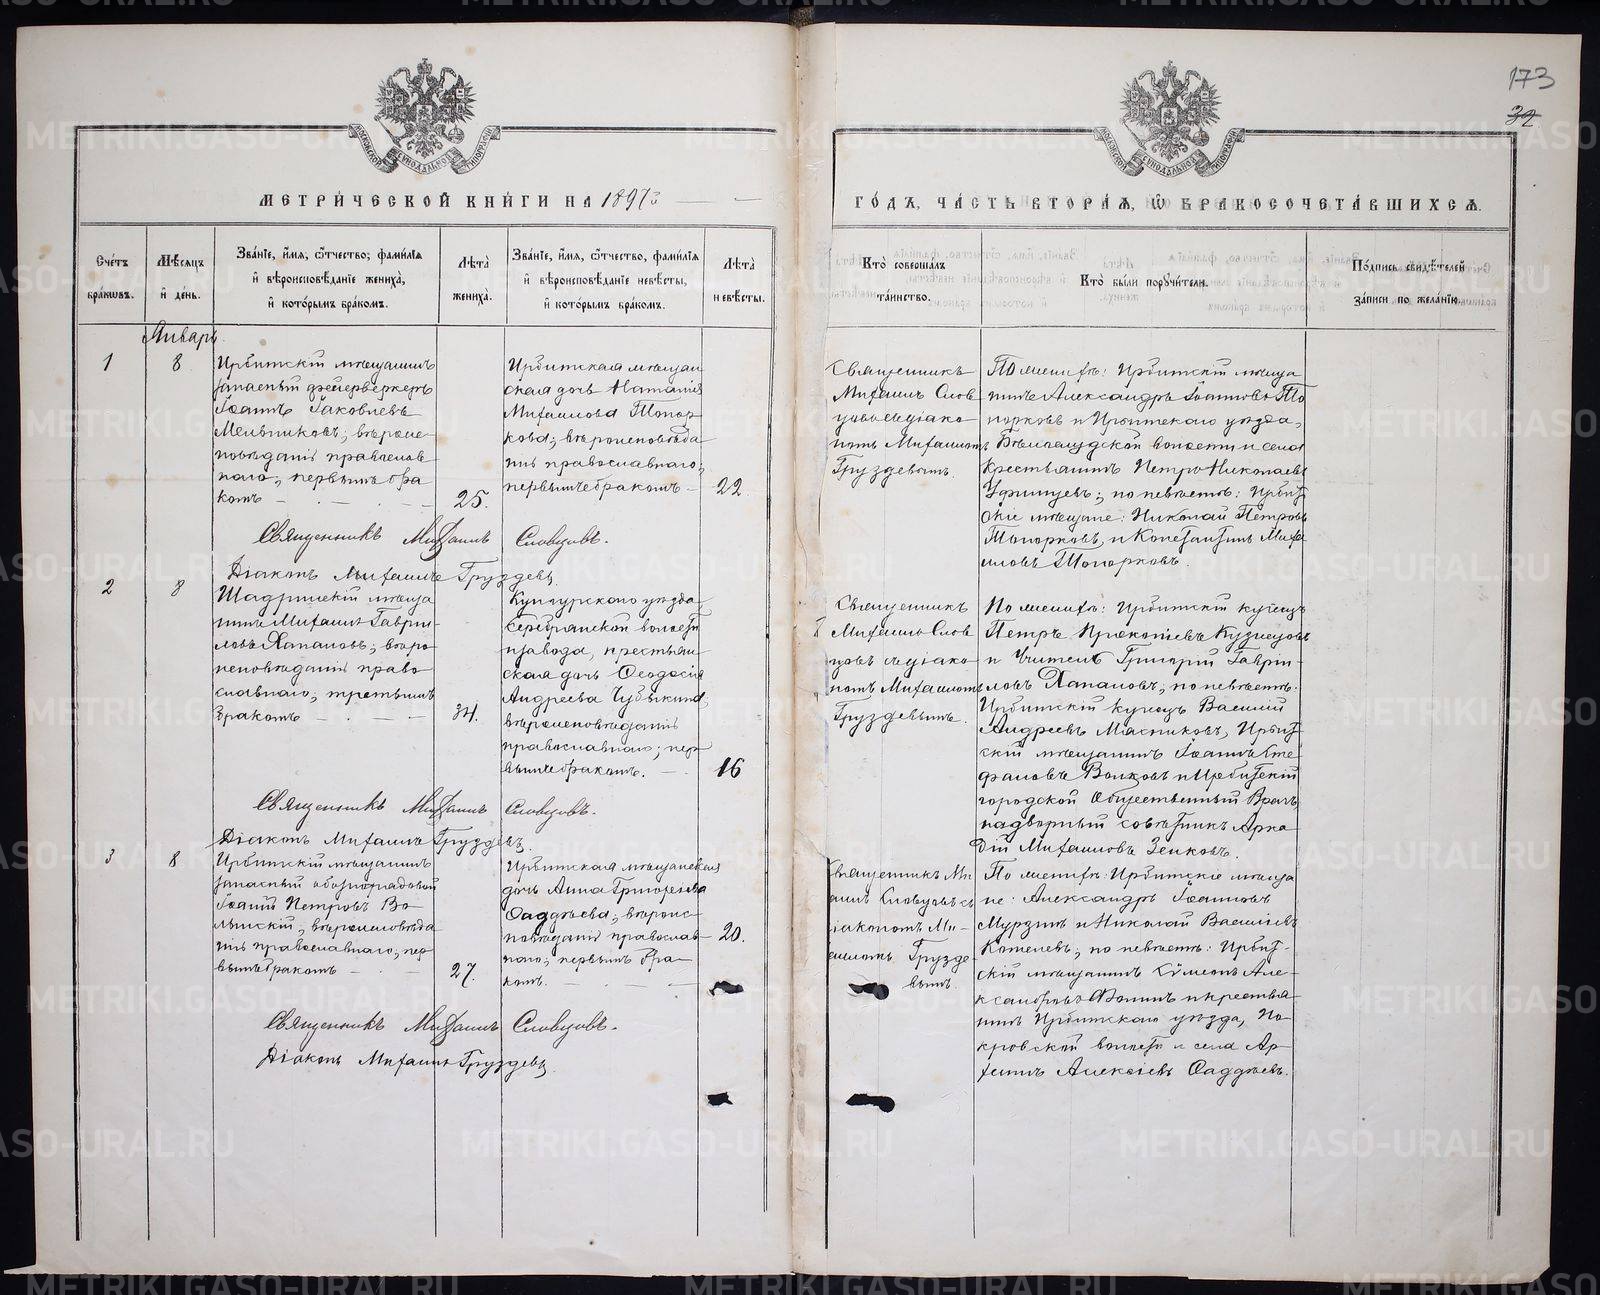 173
32
МОСКОВСКОЙ СѴНОДАЛЬНОЙ ТИПОГРАФІИ
МОСКОВСКОЙ СѴНОДАЛЬНОЙ ТИПОГРАФІИ
МЕТРИ́ЧЕСКОЙ КНИ́ГИ НА 1897
ГО́ДЪ, ЧА́СТЬ ВТОРА́Я, Ѡ БРАКОСОЧЕТА́ВШИХСЯ.
Сче́тъ
бра́кѡвъ.
Мѣ́сяцъ
и҆ де́нь.
Зва́нїе, и҆́мя, ѻ҆́тчество, фами́лїя
и҆ вѣроисповѣ́данїе жениха̀,
и҆ кото́рымъ бра́комъ.
Лѣта̀
жениха̀.
Зва́нїе, и҆́мя, ѻ҆́тчество, фами́лїя
и҆ вѣроисповѣ́данїе невѣ́сты,
и҆ кото́рымъ бра́комъ.
Лѣта̀
невѣ́сты.
Кто̀ соверша́лъ
та́инство.
Кто̀ бы́ли поручи́тели.
По́дпись свидѣ́телей
за́писи по жела́нїю.
Январь
1
8
Ирбитскій мѣщанинъ
запасный фейерверкеръ
Іоаннъ Іаковлевъ
Мельниковъ; вѣроис-
повѣданія православ
наго; первымъ бра
комъ
25.
Ирбитская мѣщан
ская дочь Наталія
Михаилова Топор
кова; вѣроисповѣда
нія православнаго;
первымъ бракомъ
22
Священникъ
Михаилъ Слов
цовъ съ діако
номъ Михаиломъ
Груздевымъ.
По женихѣ: Ирбитскій мѣща
нинъ Александръ Іоанновъ То
порковъ и Ирбитскаго уѣзда,
Бѣлослудской волости и села
крестьянинъ Петръ Николаевъ
по невѣстѣ: Ирбит
скіе мѣщане: Николай Петровъ
Топорковъ и Константинъ Миха
иловъ Топорковъ.
Священникъ Михаилъ Словцовъ.
Діаконъ Михаилъ Груздевъ.
2
8
Шадринскій мѣща
нинъ Михаилъ Гаври-
ловъ Хапаловъ; вѣро
исповѣданія право
славнаго; третьимъ
бракомъ
34.
Кунгурскаго уѣзда
Серебрянской волости
и завода, крестьян
ская дочь Ѳеодосія
Андреева
вѣроисповѣданія
православнаго; пер
вымъ бракомъ.
16
Священникъ
Михаилъ Слов
цовъ съ діако
номъ Михаиломъ
Груздевымъ.
По женихѣ: Ирбитскій купецъ
Петръ Прокопіевъ Кузнецовъ
и Учитель Григорій Гаври-
ловъ Хапаловъ; по невѣстѣ:
Ирбитскій купецъ Василій
Андреевъ Мясниковъ, Ирбит
скій мѣщанинъ Іоаннъ Сте
фановъ Волковъ и Ирбитскій
городской Общественный Врачъ,
надворный совѣтникъ Арка
дій Михаиловъ Зенковъ.
Священникъ Михаилъ Словцовъ.
Діаконъ Михаилъ Груздевъ.
3
8
Ирбитскій мѣщанинъ
запасный обознорядовой
Іоаннъ Петровъ Во
лынскій; вѣроисповѣда
нія православнаго; пер
вымъ бракомъ
27.
Ирбитская мѣщанская
дочь Анна Григоріева
Ѳаддѣева; вѣроис-
повѣданія православ
наго; первымъ бра-
комъ.
20.
Священникъ Ми
хаилъ Словцовъ съ
діакономъ Ми-
хаиломъ Груздe
вымъ.
По женихѣ: Ирбитскіе мѣща
не: Александръ Іоанновъ
Мурзинъ и Николай Васильевъ
Котелевъ; по невѣстѣ: Ирбит-
скій мѣщанинъ Сѵмеонъ Але-
ксандровъ Ѳоминъ и крестья
нинъ Ирбитскаго уѣзда, По-
кровской волости и села Ар-
хиппъ Алексіевъ Ѳаддѣевъ.
Священникъ Михаилъ Словцовъ.
Діаконъ Михаилъ Груздевъ.
METRIKI.GASO-URAL.RU